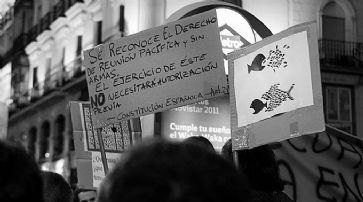 SE RECONOCE EL DERECHO
DE REUNIÓN PACÍFICA Y SIN
ARMAS.
EL EJERCICIO DE ESTE
NO NECESITARÁ AUTORIZACIÓN
PREVIA
- CONSTITUCIÓN ESPAÑOLA - Art 21
Sorteo Waka Waka 2011
Cumple tu sueño